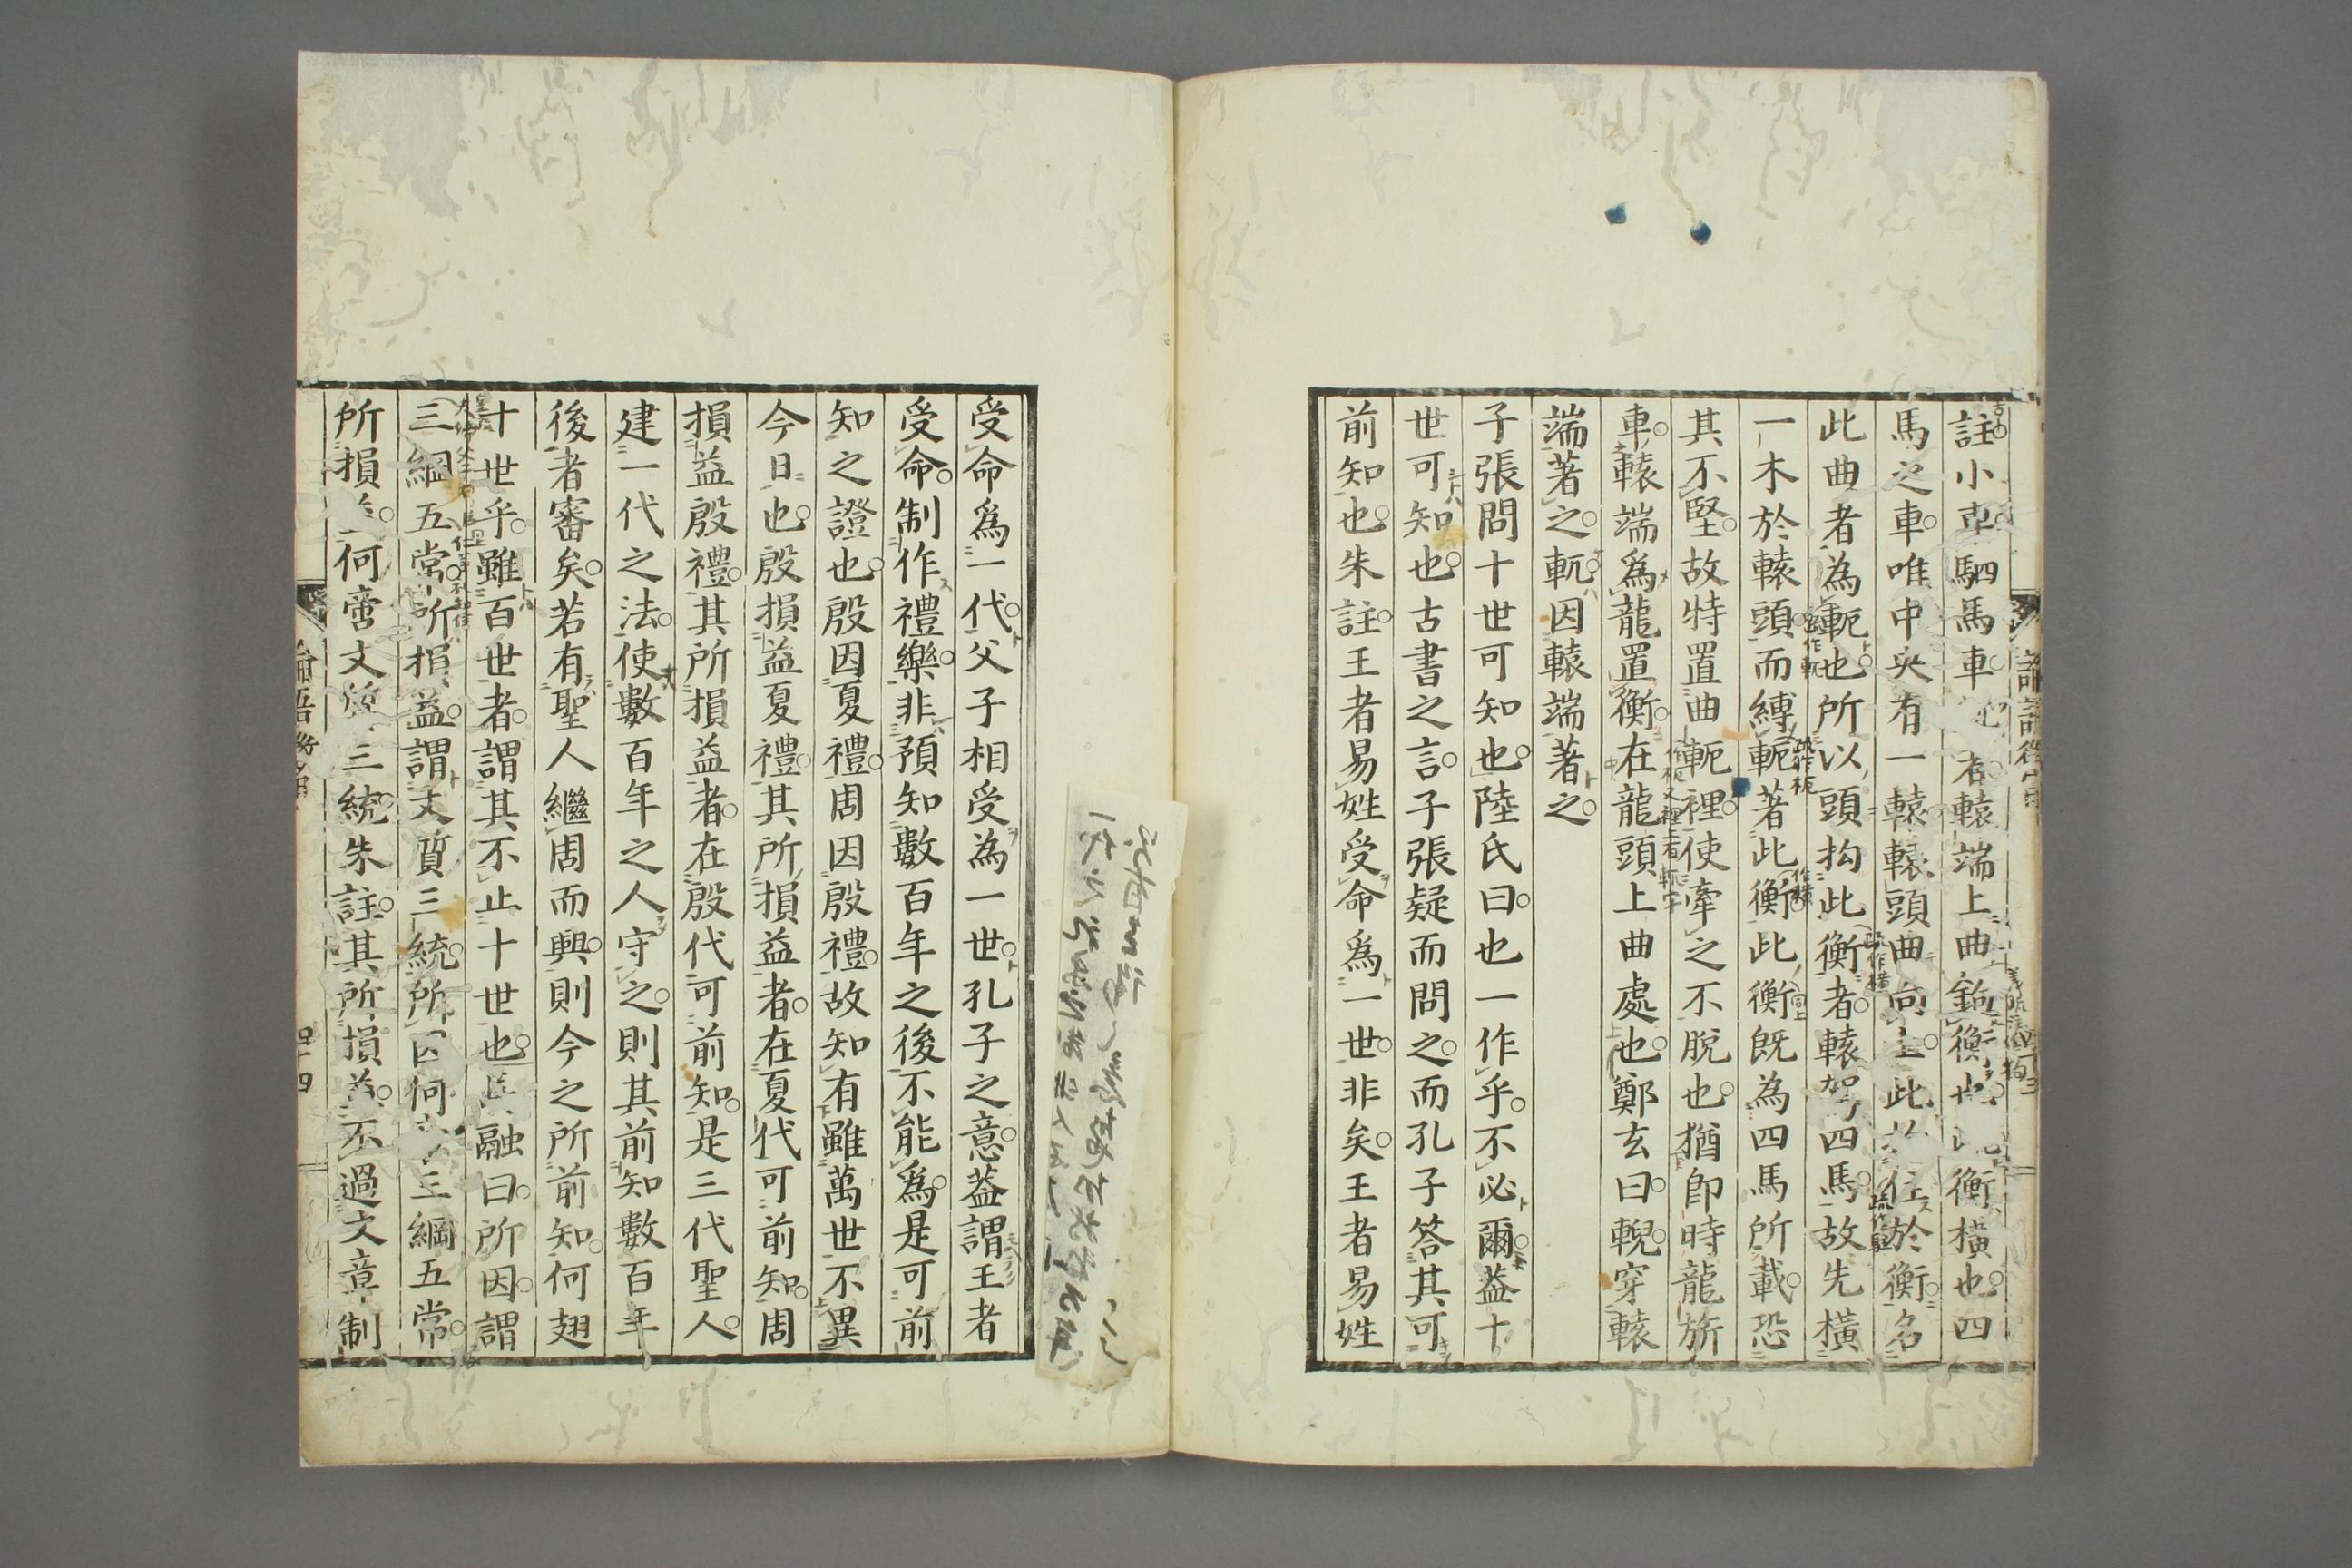 註小車駟馬車也者轅端上曲鉤衡也此衡橫也四
馬之車唯中央有一轅轅頭曲向上此拄於衡名
此曲者為軛也所以頭拘此衡者轅駕四馬故先橫
一木於轅頭而縛軛著此衡此衡既為四馬所載恐
其不堅故特置曲軛裡使牽之不脫也猶即時龍旂
車轅端爲龍置衡在龍頭上曲處也鄭玄曰輗穿轅
端著之軏因轅端著之
子張問十世可知也陸氏曰也一作乎不必爾蓋十
世可知也古書之言子張疑而問之而孔子答其可
前知也朱註王者易姓受命爲一世非矣王者易姓
受命爲一代父子相受為一世孔子之意蓋謂王者
受命制作禮樂非預知數百年之後不能爲是可前
知之證也殷因夏禮周因殷禮故知有雖萬世不異
今日也殷損益夏禮其所損益者在夏代可前知周
損益殷禮其所損益者在殷代可前知是三代聖人
建一代之法使數百年之人守之則其前知數百年
後者審矣若有聖人繼周而興則今之所前知何翅
十世乎雖百世者謂其不止十世也馬融曰所因謂
三綱五常所損益謂文質三統所因何啻三綱五常
所損益何啻文質三統朱註其所損益不過文章制
四十四